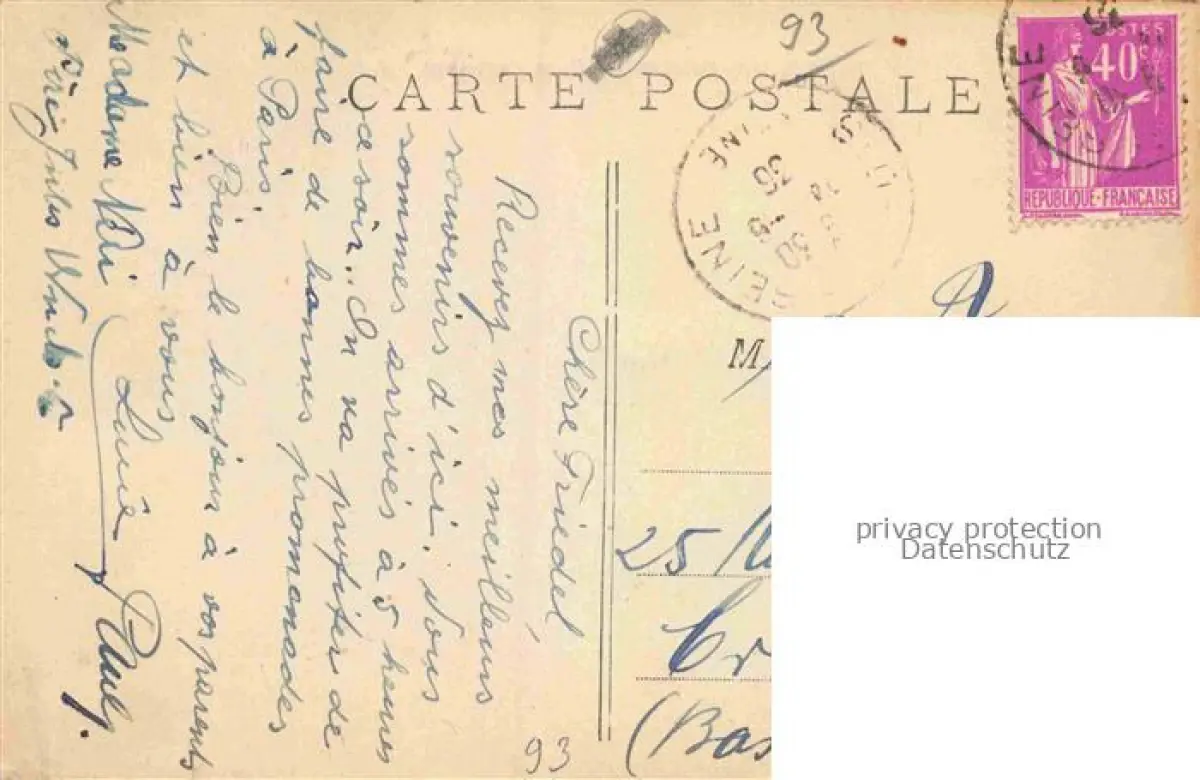 93
CARTE POSTALE
POSTES
40c
REPUBLIQUE-FRANÇAISE
SEINE
30
Chère Friedel
Recevez mes meilleurs
souvenirs d'ici. Nous
sommes arrivés à 5 heures
ce soir. On va profiter de
faire de bonnes promenades
à Paris.
Bien le bonjour à vos parents
et bien à vous
Madame
M
25
(Bas
93
privacy protection
Datenschutz